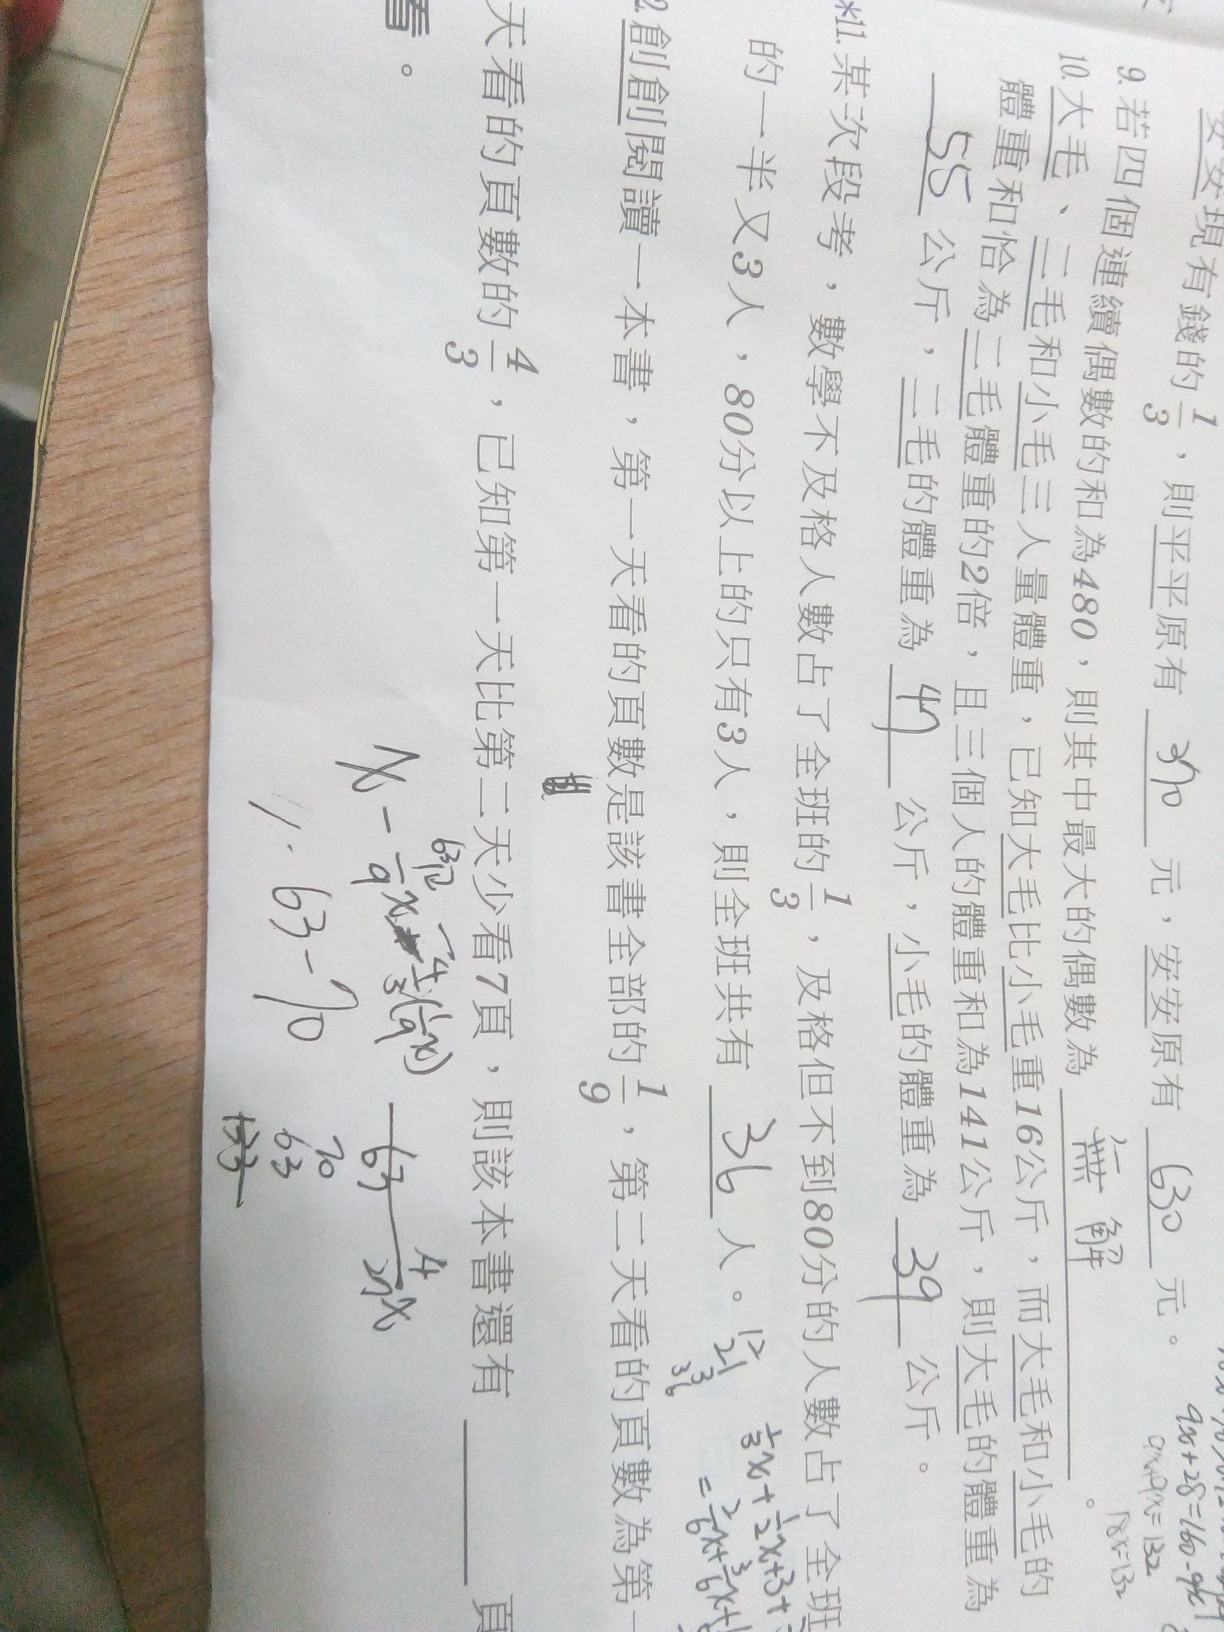 安安現有錢的1/3，則平平原有 370 元，安安原有 630 元。
9.若四個連續偶數的和為480，則其中最大的偶數為 無解 。
10.大毛、二毛和小毛三人量體重，已知大毛比小毛重16公斤，而大毛和小毛的
體重和恰為二毛體重的2倍，且三個人的體重和為141公斤，則大毛的體重為
55 公斤，二毛的體重為 47 公斤，小毛的體重為 39 公斤。
*11.某次段考，數學不及格人數占了全班的1/3，及格但不到80分的人數占了全班
的一半又3人，80分以上的只有3人，則全班共有 36 人。
2.創創閱讀一本書，第一天看的頁數是該書全部的1/9，第二天看的頁數為第一
天看的頁數的4/3，已知第一天比第二天少看7頁，則該本書還有 頁
看。
9x+28=160-9x
9x+9x=132
18x=132
12
21
3
36
1/3x+1/2x+3+
=2/6x+3/6x+
x-1/9x-4/3(1/9x)
63
4/27x
63-70
70
63
133